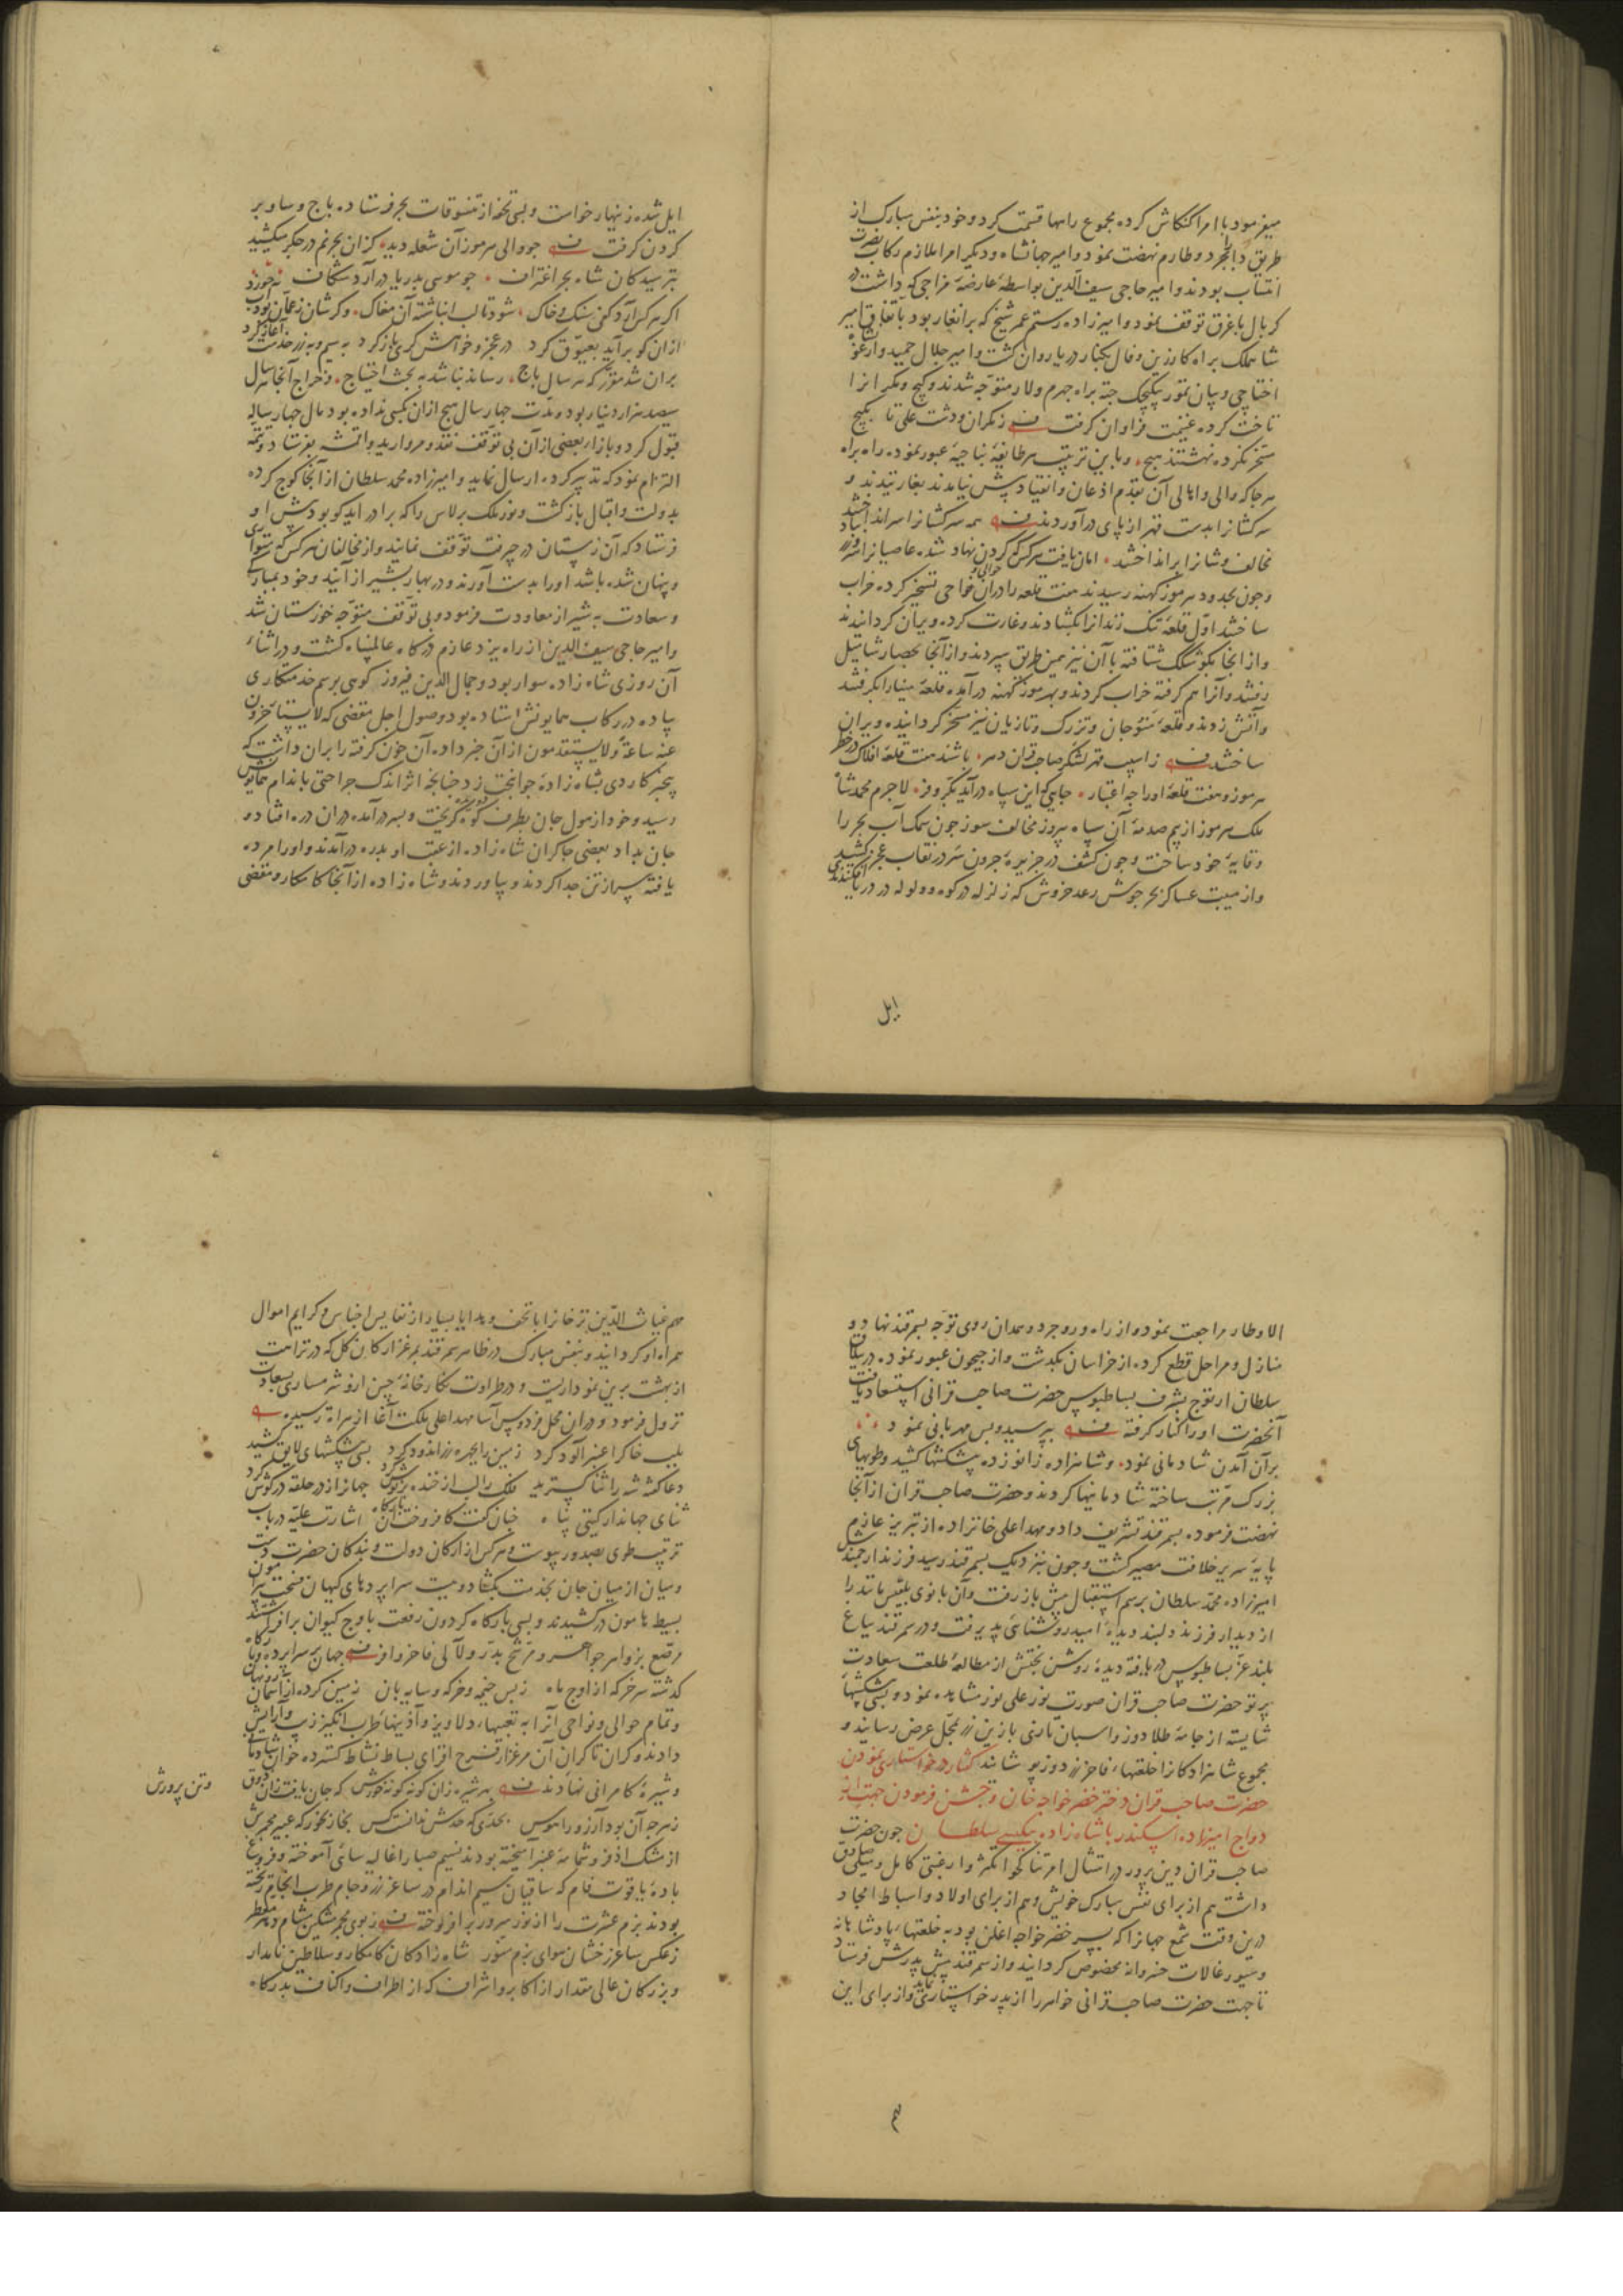 میفرمود با امرا کنکاش کرده مجموع راهها قسمت کرد و خود بنفس مبارک از
طریق دابجرد و طارم نهضت نمود و امیر جهانشاه و دیکر امرا ملازم رکاب نصرت
انتساب بودند و امیر حاجی سیف الدین بواسطهٔ عارضهٔ مزاجی که داشت در
کربال با غرق توقف نمود و امیرزاده رستم عمر شیخ که برانغار بود باتفاق امیر
شاهملک براه کازرین و فال بکنار دریا روان کشت و امیر جلال حمید و ارغو
اختاجی و بیان تمور بیکیجک جته براه جهرم و لار متوجه شدند و کیج و مکرانرا
تاخت کرده غنیمت فراوان کرفت ز مکران و دشت علی تا بکیج
مسخر نکرده نهشتند هیچ و باین ترتیب هر طایفهٔ بناحیهٔ عبور نموده راه براه
هر جا که والی و اهالی آن بقدم اذعان و انقیاد پیش نیامدند بغارتیدند و
سرکشانرا بدست قهر از پای درآوردند همه سرکشانرا سر انداختند
مخالف وشانرا برانداختند امان یافت هرکس که کردن نهاد شده عاصیانرا
و چون بحدود هرموز کهنه رسیدند هفت قلعه را در آن حوالی و نواحی تسخیر کرده خراب
ساختند اول قلعه تنک زندانرا بکشادند و غارت کرده ویران کردانیدند
و از انجا بکوشکک شتافته با آن نیز همین طریق سپردند و از آنجا بحصار شامیل
رفتند و آنرا هم کرفته خراب کردند و بهرموز کهنه درآمده قلعهٔ مینا را بکرفتند
و آتش زدند و قلعهٔ منوجان و ترزک و تازیان نیز مسخر کردانیده ویران
ساختند ز آسیب قهر لشکر صاحب قران دهر باشند هفت قلعهٔ افلاک در خطر
هرموز و هفت قلعهٔ او را چه اعتبار جایی که این سپاه درآید بکر و فر لاجرم محمد شاه
ملک هرموز از بیم صدمهٔ آن سپاه پیروز مخالف سوز چون سمک آب بحر را
وقایهٔ خود ساخت و چون کشف در جزیرهٔ جرون سر در نقاب عجز کشید
و از هیبت عساکر بحر جوش رعد خروش که زلزله در کوه و ولوله در دریا افکندند
ایل
ایل شده زنهار خواست و بسی تحفه از تنسوقات بحر فرستاده باج و ساو بر
کردن کرفت چو والی هرموز آن شعله دید کزان بحر غم در جکر میکشید
بترسید کان شاه بحر اغتراف چو موسی بدریا درآرد شکاف
اکر هرکس آرد کفی سنک و خاک شود تا لب انباشته آن مغاک
ازان کو برآید بعیوق کرد در عجز و خواهش کری باز کرد
بران شد مقرر که هر سال باج رساند نباشد به بحث احتیاج و خراج آنجا هر سال
سیصد هزار دینار بود و مدت چهار سال هیچ ازان بکسی نداده بود مال چهار ساله
قبول کرد و بازاء بعضی از آن بی توقف نقد و مروارید و اقمشه بفرستاد و تتمه
التزام نمود که تدبیر کرده ارسال نماید و امیرزاده محمد سلطان از آنجا کوچ کرده
بدولت و اقبال بازکشت و نور ملک برلاس را که برادر ایدکو بود پیش او
فرستاد که آن زمستان در جیرفت توقف نمایند و از مخالفان هرکس که متواری
و پنهان شده باشد او را بدست آورند و در بهار بشیراز آیند و خود بمبارکی
و سعادت به شیراز معاودت فرمود و بی توقف متوجه خوزستان شد
و امیر حاجی سیف الدین از راه یزد عازم درکاه عالم پناه کشت و در اثناء
آن روزی شاه زاده سوار بود و جمال الدین فیروز کوهی برسم خدمتکاری
پیاده در رکاب همایونش استاده بود و وصول اجل مقتضی که لایستأخرون
عنه ساعة ولایستقدمون ازان خبر داده آن خون کرفته را بران داشت که
پنجه کاردی بشاه زادهٔ جوانبخت زد چنانچه اثر اندک جراحتی باندام همایونش
رسید و خود از هول جان بطرف کوه کریخت و بسر درآمده در آن دره افتاد و
جان بداد بعضی چاکران شاه زاده از عقب او بدره درآمدند و او را مرده
یافته سرش از تن جدا کردند و بیاوردند و شاه زاده از آنجا کامکار و مقضی
الاوطار مراجعت نمود و از راه وروجرد و همدان روی توجه بسمرقند نهاد و
منازل و مراحل قطع کرده از خراسان بکذشت و از جیحون عبور نموده
سلطان ارتوج بشرف بساطبوس حضرت صاحب قرانی استسعاد یافت
آنحضرت او را کنار کرفته بپرسید و بس مهربانی نمود
بر آن آمدن شادمانی نمود و شاهزاده زانو زده پیشکشها کشید و طویهای
بزرک مرتب ساخته شادمانیها کردند و حضرت صاحب قران از آنجا
نهضت فرموده بسمرقند تشریف داد و مهد اعلی خانزاده از تبریز عازم
پایهٔ سریر خلافت مصیر کشت و چون نزدیک بسمرقند رسید فرزند ارجمندش
امیرزاده محمد سلطان برسم استقبال پیش باز رفت و آن بانوی بلقیس مانند را
از دیدار فرزند دلبند دیدهٔ امید روشنائی پذیرفت و در سمرقند بباغ
بلند عز بساطبوس دریافته دیدهٔ روشن بختش از مطالعهٔ طلعت سعادت
پرتو حضرت صاحب قران صورت نور علی نور مشاهده نمود و بسی پیشکشها
شایسته از جامهٔ طلادوز و اسبان تازی با زین زر بمحل عرض رسانید و
مجموع شاهزادکانرا خلعتهاء فاخر زردوز پوشانید کفتار در خواستاری نمودن
حضرت صاحب قران دختر خضر خواجه خان و جشن فرمودن جهت
ازدواج امیرزاده اسکندر با شاه زاده بیکسی سلطان چون حضرت
صاحب قران دین پرور در امتثال امر تناکحوا تکثروا رغبتی کامل و میلی صادق
داشت هم از برای نفس مبارک خویش و هم از برای اولاد و اسباط امجاد
درین وقت شمع جهانرا که پسر خضر خواجه اغلن بود به خلعتهاء پادشاهانه
و سیورغالات خسروانه مخصوص کردانید و از سمرقند پیش پدرش فرستاد
تا جهت حضرت صاحب قرانی خواهر را از پدر خواستاری نماید و از برای این
مهم
مهم غیاث الدین ترخانرا با تحف و هدایا بسیار از نفایس اجناس و کرایم اموال
همراه او کردانید و بنفس مبارک در ظاهر سمرقند بمرغزار کان کل که در نزاهت
از بهشت برین نموداریست و در طراوت نکارخانهٔ چین ازو شرمساری بسعادت
نزول فرمود و در آن محل فردوس آسا مهد اعلی ملکت آغا از هراة رسید
بلب خاک را عنبر آلود کرد زمین را بچهره زراندود کرد بسی پیشکشهای لایق کشید
دعا کفت شه را ثنا کسترید فلک را لب از خنده پرنوش کرد جهاز از در حلقه در کوش کرد
ثنای جهاندار کیتی پناه چنان کفت کافروخت آن بارکاه اشارت علیه در باب
ترتیب طوی بصدور پیوست و هرکس از ارکان دولت و بندکان حضرت دست
و میان از میان جان بخدمت بکشاد و ببست سراپردهای کیهان فسحت پیرامون
بسیط هامون درکشیدند و بسی بارکاه کردون رفعت باوج کیوان برافراشتند
مرصع بزواهر جواهر و مرشح بدرر و لآلی فاخر وافر جهان پر سراپرده و بارکاه
کذشته سر خرکه از اوج ماه ز بس خیمه و خرکه و سایه بان زمین کرده از آسمان رو نهان
و تمام حوالی و نواحی آنرا به تعبیهاء دلاویز و آذینهاء طرب انکیز زیب و آرایش
دادند و کران تا کران آن مرغزار تفرح افزای بساط نشاط کسترده خوان شادمانی
و شیرهٔ کامرانی نهادند بهر شیره زان کونه کونه خورش که جان یافت زان ذوق
وتن پرورش
ز هرچه آن بود آرزو را هوس بحدی که حدش ندانست کس بخار بخور که عبیر مجمرش
از مشک اذفر و شمامهٔ عنبر آمیخته بودند نسیم صبا را غالیه سائی آموخته و فروغ
بادهٔ یاقوت فام که ساقیان سیم اندام در ساغر زر و جام طرب انجام ریخته
بودند بزم عشرت را از نور سرور برافروخته ز بوی مجمر مشکین مشام دهر معطر
ز عکس ساغر رخشان هوای بزم منور شاه زادکان کامکار و سلاطین نامدار
و بزرکان عالی مقدار از اکابر و اشراف که از اطراف و اکناف بدرکاه